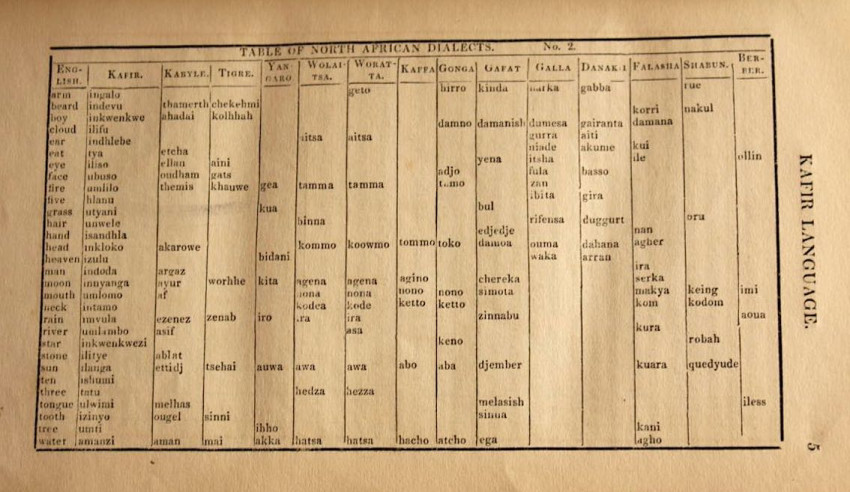 TABLE OF NORTH AFRICAN DIALECTS. No. 2.
ENG-LISH. KAFIR. KABYLE. TIGRE. YAN-GARO WOLAI-TSA. WORAT-TA. KAFFA GONGA GAFAT GALLA DANAK-I FALASHA SHABUN. BER-BER.
arm ingalo geto hirro kinda harka gabba rue
beard indevu thamerth chekehmi korri nakul
boy inkwenkwe ahadai kolhhah damno damanish dumesa gairanta damana
cloud ilifu gurra aiti
ear indhlebe aitsa aitsa
eat tya etcha niade akume kui
eye iliso ellan aini yena itsha ile ollin
face ubuso oudham gats adjo fula basso
fire umlilo themis khauwe gea tamma tamma tamo zan
five hlanu ibita gira
grass utyani kua bul
hair unwele binna rifensa duggurt oru
hand isandhla edjedje nan
head inkloko akarowe kommo koowmo tommo toko damoa ouma dahana agher
heaven izulu bidani waka arran
man indoda argaz ira
moon innyanga ayur worhhe kita agena agena agino chereka serka
mouth umlomo af nona nona nono nono simota makya keing imi
neck intamo kodea kode ketto ketto kom kodom
rain imvula ezenez zenab iro ira ira zinnabu aoua
river umlambo asif asa kura
star inkwenkwezi keno robah
stone ilitye ablat
sun ilanga ettidj tsehai auwa awa awa abo aba djember kuara quedyude
ten ishumi
three tatu hedza hezza
tongue ulwimi melhas melasish iless
tooth izinyo ougel sinni sinua
tree umti ibho kani
water amanzi aman mai akka hatsa hatsa hacho atcho ega agho
KAFIR LANGUAGE.
5